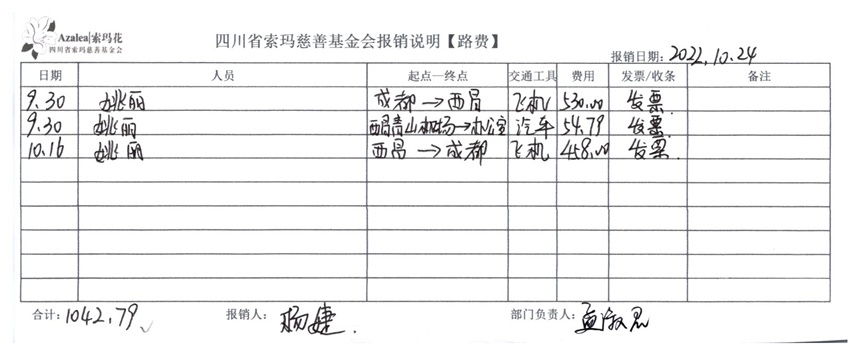 Azalea|索玛花
四川省索玛慈善基金会
四川省索玛慈善基金会报销说明【路费】
报销日期：2022.10.24
日期 人员 起点—终点 交通工具 费用 发票/收条 备注
9.30 姚丽 成都→西昌 飞机 530.00 发票
9.30 姚丽 西昌青山机场→办公室 汽车 54.79 发票.
10.16 姚丽 西昌→成都 飞机 458.00 发票.
合计：1042.79 报销人：杨婕. 部门负责人：